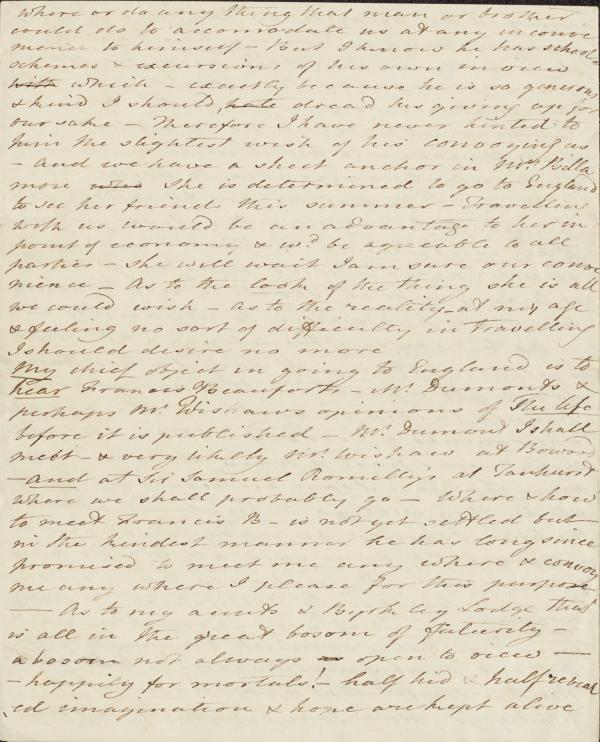 where or do any thing that man or brother
could do to accomodate us at any inconve
nience to himself – But I know he has
schemes & excursions of his own in view
with which – exactly because he is so generous
& kind I should, hate dread his giving up for
our sake – Therefore I have never hinted to
him the slightest wish of his convoying us
– And we have a sheet anchor in Mrs. Billa
more She is determined to go to England
to see her friends this summer – Travelling
with us would be an advantage to her in
point of economy & wd. be agreeable to all
parties – She will wait I am sure our conve
nience – As to the look of the thing she is all
we could wish – as to the reality – at my age
& feeling no sort of difficulty in travelling
I should desire no more
My chief object in going to England is to
hear Francis Beauforts – Mr. Dumonts &
perhaps Mr. Wishaws opinions of The life
before it is published – Mr. Dumont I shall
meet – & very likely Mr. Wishaw at Bowood
– And at Sir Samuel Romilly's at Tanhurst
where we shall probably go – Where & how
to meet Francis B – is not yet settled but –
in the kindest manner he has long since
promised to meet me any where & convoy
me any where I please for this purpose
— As to my aunts & Byrkley Lodge that
is all in the great bosom of futurity –
a bosom not always open to view —
– happily for mortals! – half hid & half reveal
ed imagination & hope are kept alive